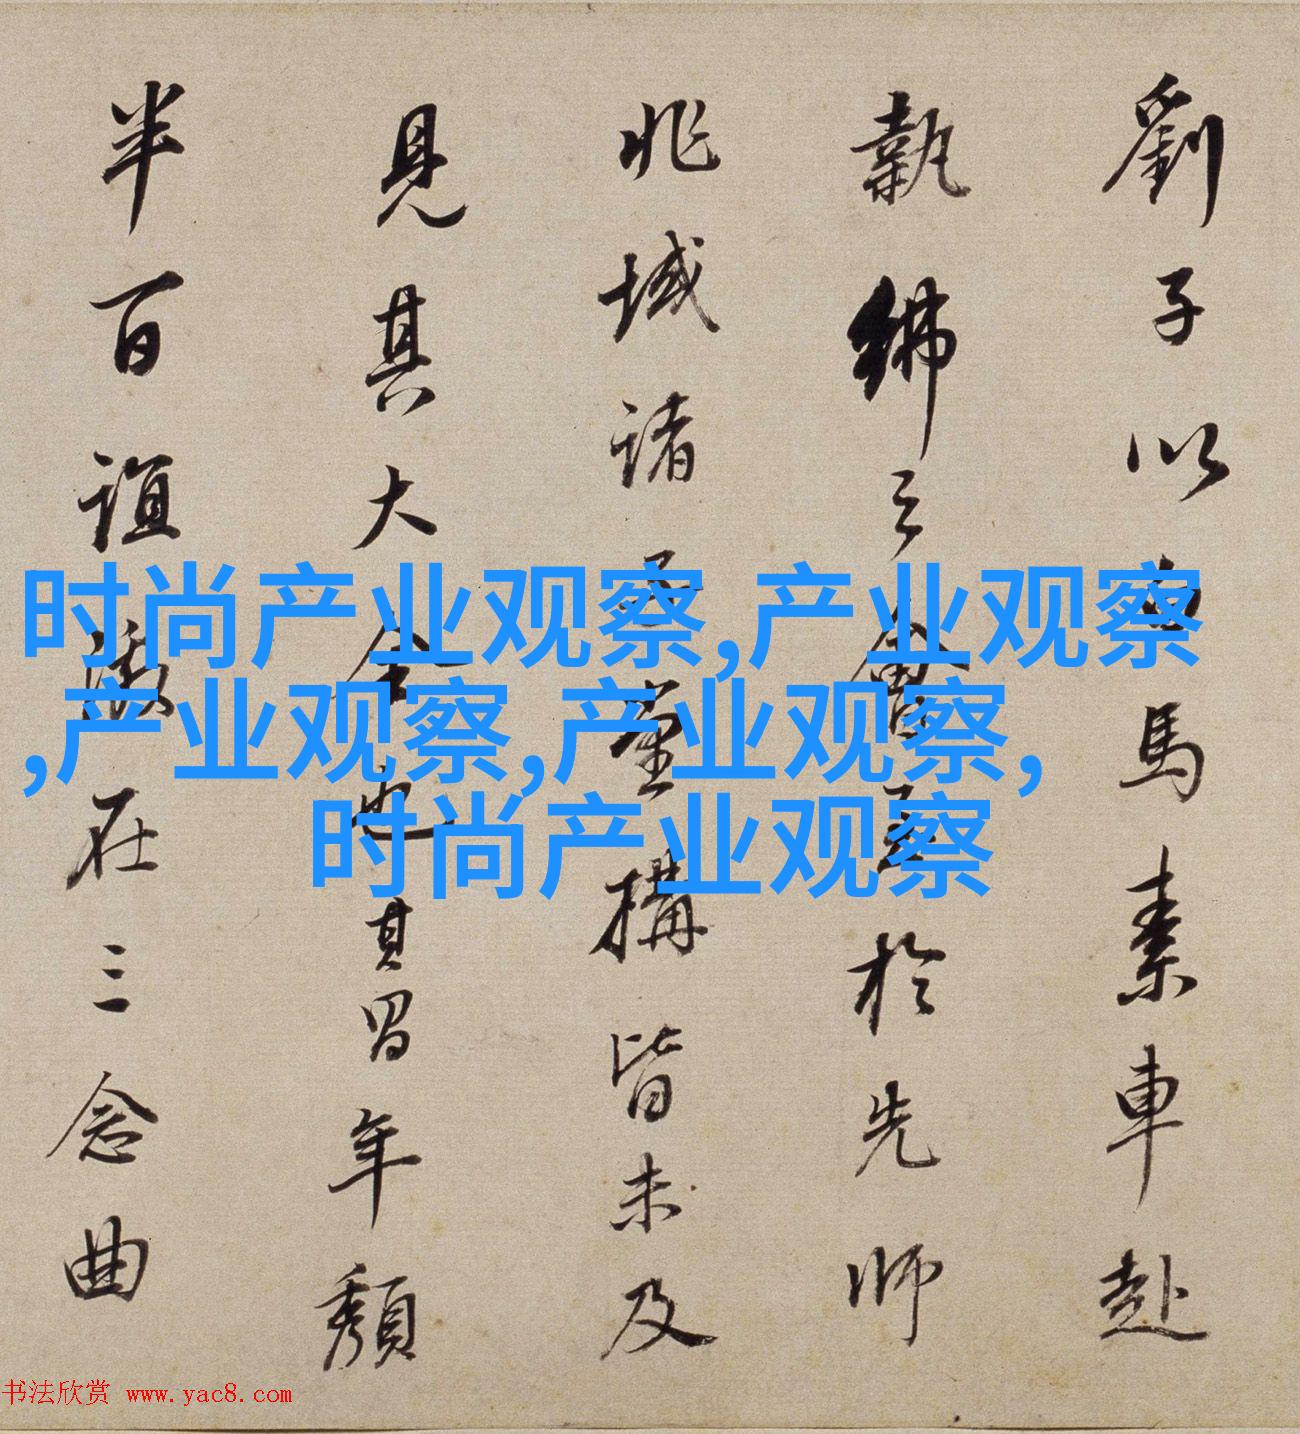 劉子以白馬素車赴
執紼之會至於先師
兆域諸子堂構皆未及
見其大全也其留年頹
半百誼激在三念曲
时尚产业观察,产业观察
,产业观察,产业观察,
时尚产业观察
书法欣赏 www.yac8.com